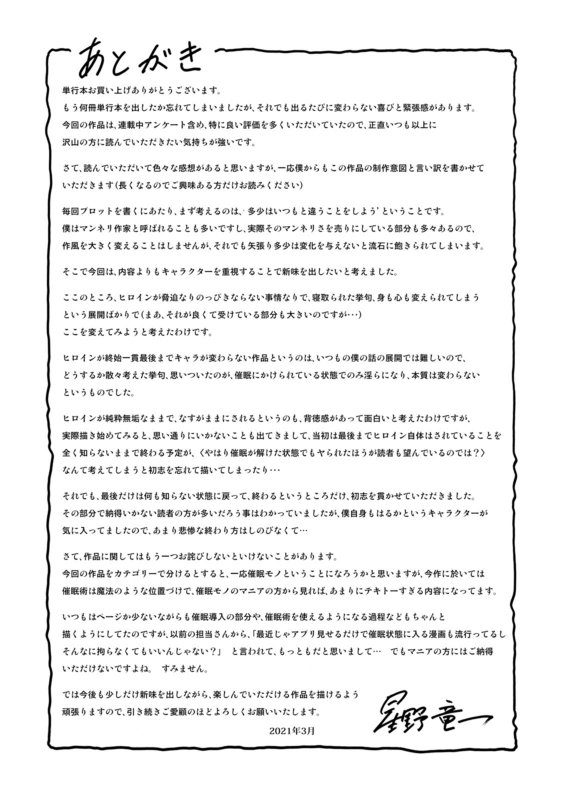 あとがき
単行本お買い上げありがとうございます。
もう何冊単行本を出したか忘れてしまいましたが、それでも出るたびに変わらない喜びと緊張感があります。
今回の作品は、連載中アンケート含め、特に良い評価を多くいただいていたので、正直いつも以上に
沢山の方に読んでいただきたい気持ちが強いです。
さて、読んでいただいて色々な感想があると思いますが、一応僕からもこの作品の制作意図と言い訳を書かせて
いただきます(長くなるのでご興味ある方だけお読みください)
毎回プロットを書くにあたり、まず考えるのは、‘多少はいつもと違うことをしよう’ということです。
僕はマンネリ作家と呼ばれることも多いですし、実際そのマンネリさを売りにしている部分も多々あるので、
作風を大きく変えることはしませんが、それでも矢張り多少は変化を与えないと流石に飽きられてしまいます。
そこで今回は、内容よりもキャラクターを重視することで新味を出したいと考えました。
ここのところ、ヒロインが脅迫なりのっぴきならない事情なりで、寝取られた挙句、身も心も変えられてしまう
という展開ばかりで(まあ、それが良くて受けている部分も大きいのですが･･･)
ここを変えてみようと考えたわけです。
ヒロインが終始一貫最後までキャラが変わらない作品というのは、いつもの僕の話の展開では難しいので、
どうするか散々考えた挙句、思いついたのが、催眠にかけられている状態でのみ淫らになり、本質は変わらない
というものでした。
ヒロインが純粋無垢なままで、なすがままにされるというのも、背徳感があって面白いと考えたわけですが、
実際描き始めてみると、思い通りにいかないことも出てきまして、当初は最後までヒロイン自体はされていることを
全く知らないまま終わる予定が、〈やはり催眠が解けた状態でもヤられたほうが読者も望んでいるのでは?〉
なんて考えてしまうと初志を忘れて描いてしまったり･･･
それでも、最後だけは何も知らない状態に戻って、終わるというところだけ、初志を貫かせていただきました。
その部分で納得いかない読者の方が多いだろう事はわかっていましたが、僕自身もはるかというキャラクターが
気に入ってましたので、あまり悲惨な終わり方はしのびなくて…
さて、作品に関してはもう一つお詫びしないといけないことがあります。
今回の作品をカテゴリーで分けるとすると、一応催眠モノということになろうかと思いますが、今作に於いては
催眠術は魔法のような位置づけで、催眠モノのマニアの方から見れば、あまりにテキトーすぎる内容になってます。
いつもはページか少ないながらも催眠導入の部分や、催眠術を使えるようになる過程などもちゃんと
描くようにしてたのですが、以前の担当さんから、「最近じゃアプリ見せるだけで催眠状態に入る漫画も流行ってるし
そんなに拘らなくてもいいんじゃない?」 と言われて、もっともだと思いまして… でもマニアの方にはご納得
いただけないですよね。 すみません。
では今後も少しだけ新味を出しながら、楽しんでいただける作品を描けるよう
頑張りますので、引き続きご愛顧のほどよろしくお願いいたします。
2021年3月
星野竜一